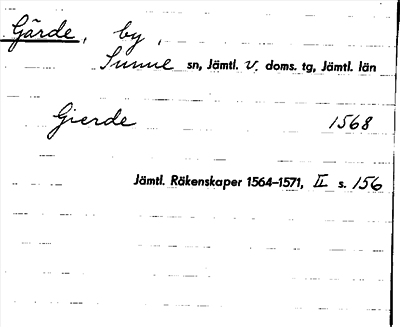 Gärde, by,
Sunne sn, Jämtl. V. doms. tg, Jämtl. län
Gierde 1568
Jämtl. Räkenskaper 1564–1571, II s. 156